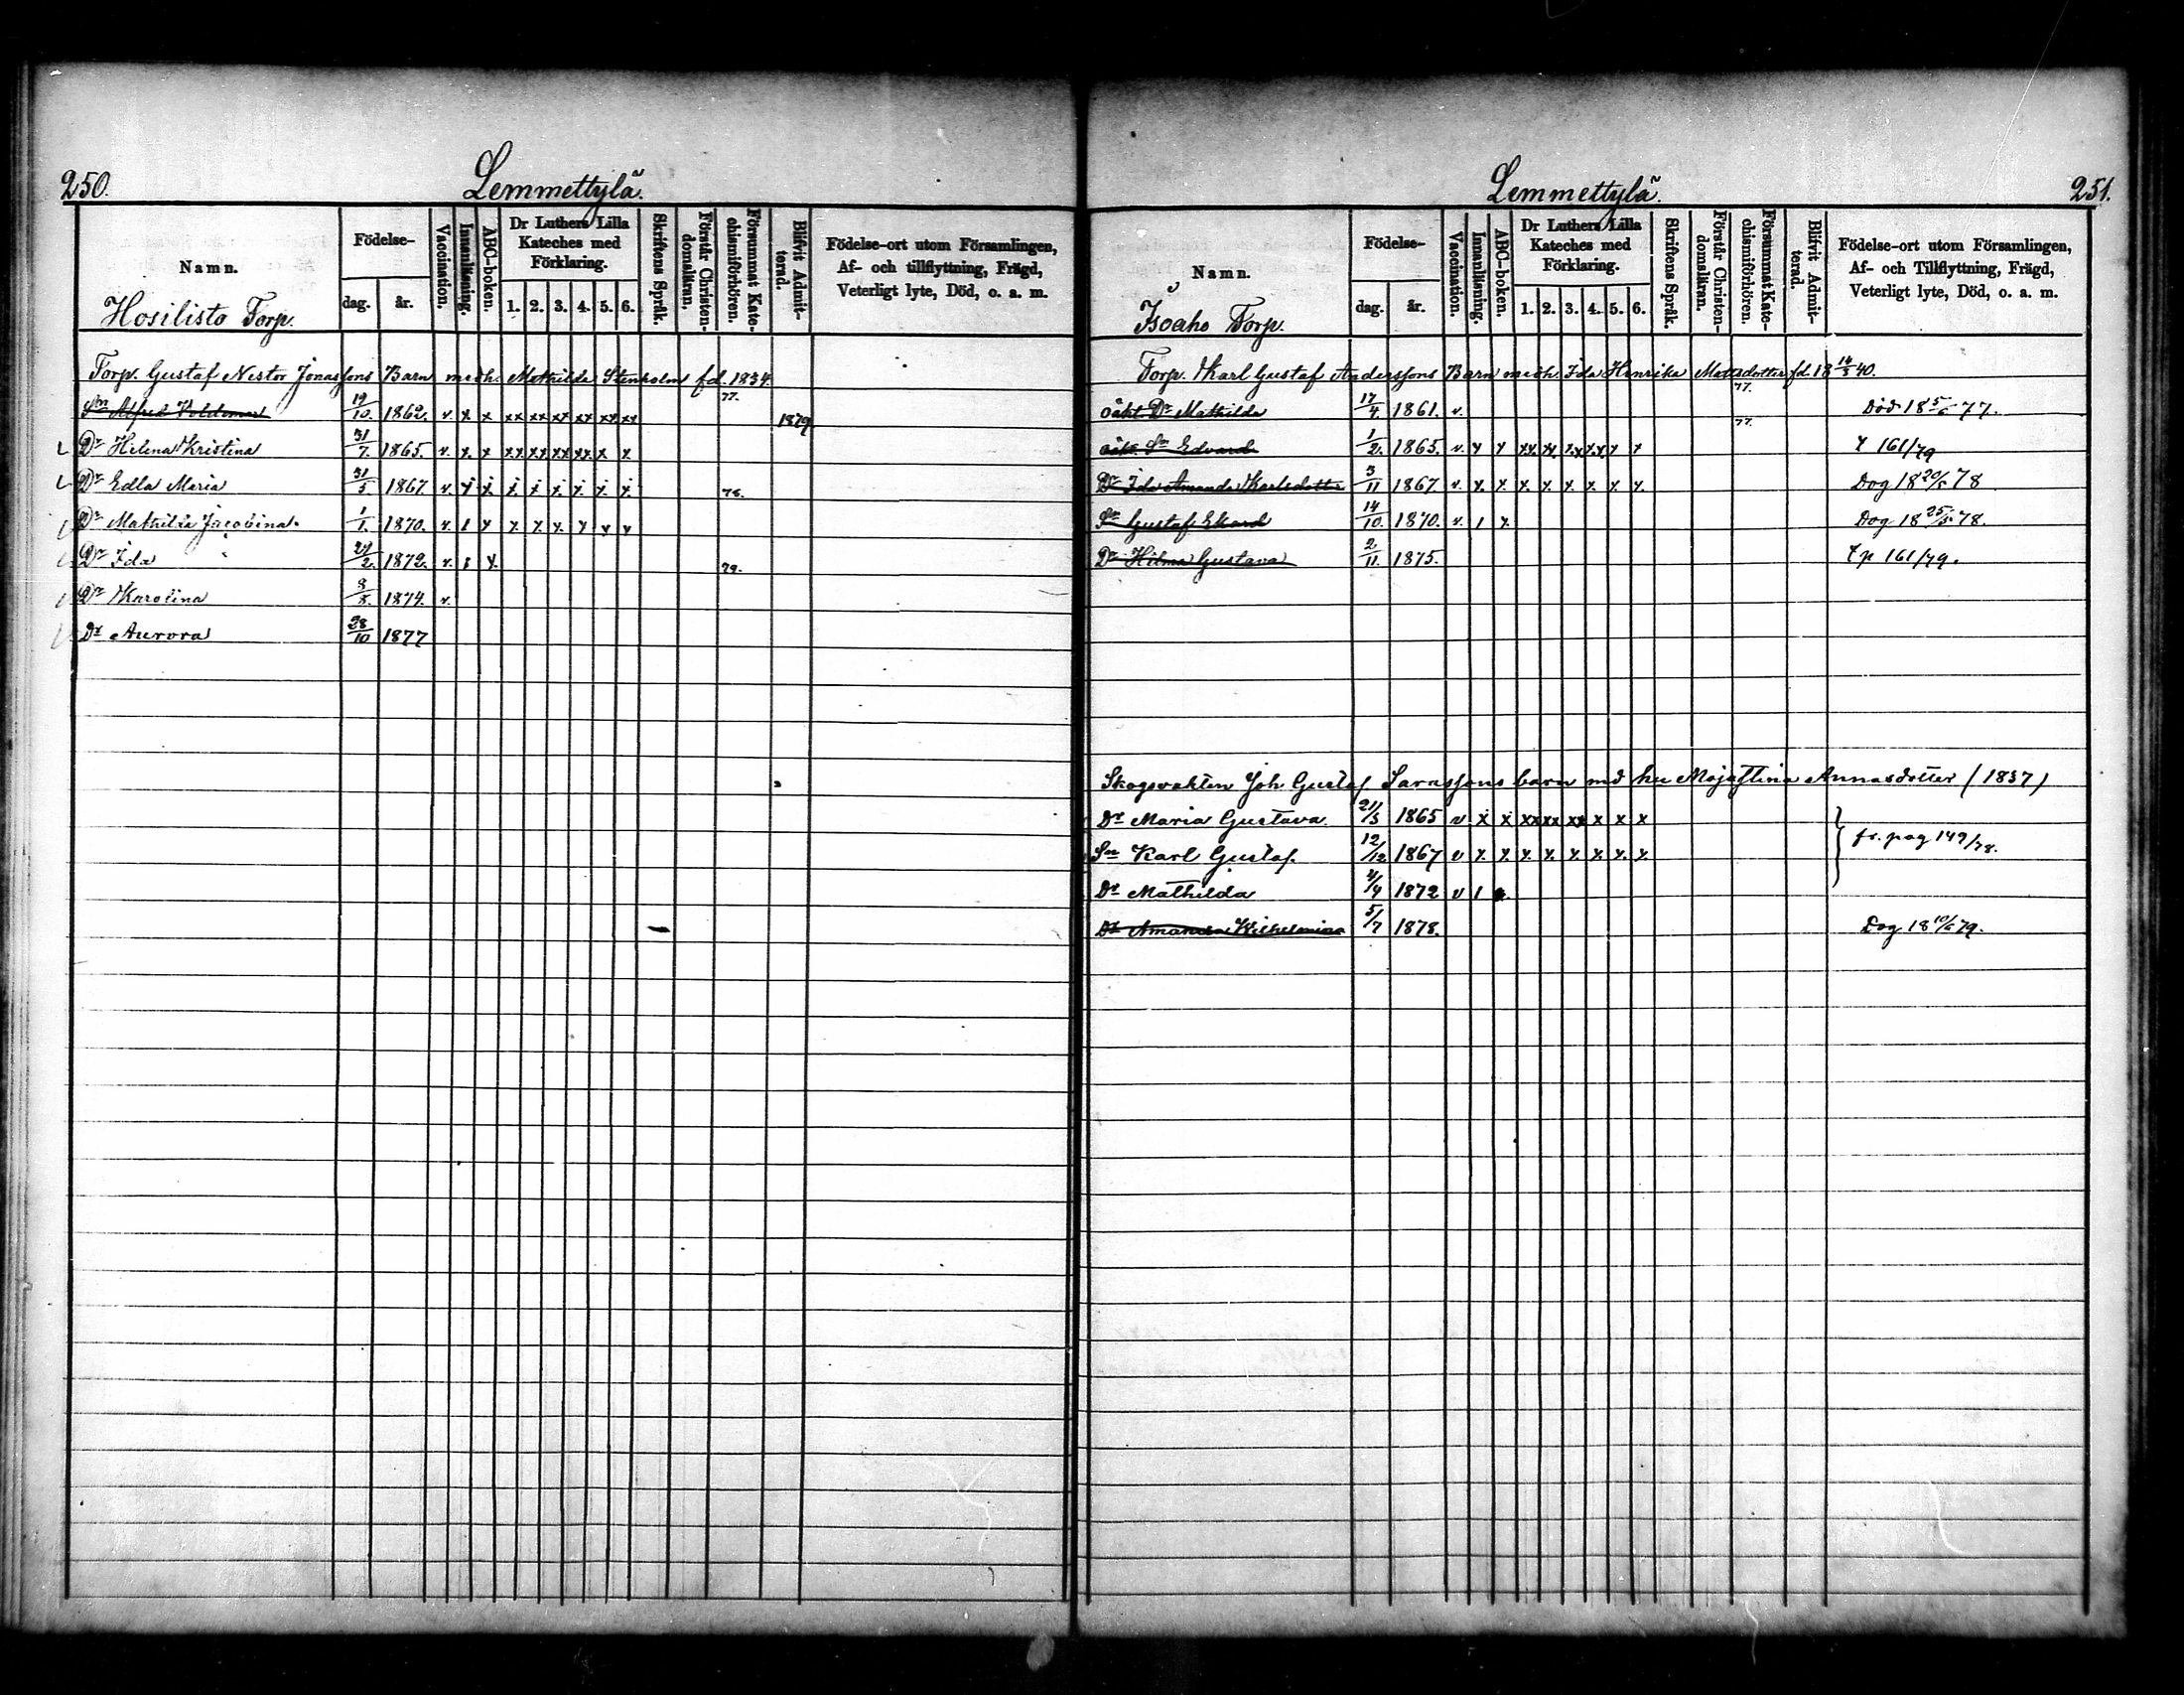 250.
Lemmettylä.
Namn.
Födelse-
dag. år.
Vaccination.
Innanläsning.
ABC-boken.
Dr Luthers Lilla Kateches med Förklaring.
1. 2. 3. 4. 5. 6.
Skriftens Språk.
Förstår Christen-domsläran.
Försummat Kate-chismiförhören.
Blifvit Admit-terad.
Födelse-ort utom Församlingen, Af- och tillflyttning, Frägd, Veterligt lyte, Död, o. a. m.
Hosilisto Torp.
Torp. Gustaf Nestor Jonassons Barn med h. Mathilda Stenholm fd. 1834.
Sn Alfred Voldemar 19/10. 1862. v. x x xx xx xx xx xx xx 77. 1879
Dr Helena Kristina 31/7. 1865. v. x x xx xx xx xx x x
Dr Edla Maria 31/5. 1867. v. x x x x x x x x 78.
Dr Mathilda Jacobina. 1/1. 1870. v. 1 x x x x x x x
Dr Ida 24/2. 1872. v. 1 x. 79.
Dr Karolina 9/8. 1874. v.
Dr Aurora 28/10 1877
251.
Lemmettylä.
Namn.
Födelse-
dag. år.
Vaccination.
Innanläsning.
ABC-boken.
Dr Luthers Lilla Kateches med Förklaring.
1. 2. 3. 4. 5. 6.
Skriftens Språk.
Förstår Christen-domsläran.
Försummat Kate-chismiförhören.
Blifvit Admit-terad.
Födelse-ort utom Församlingen, Af- och Tillflyttning, Frägd, Veterligt lyte, Död, o. a. m.
Isoaho Torp.
Torp. Karl Gustaf Anderssons Barn med h. Ida Henrika Matsdotter fd. 18 14/3 40.
oäkt. Dr Mathilda 17/4 1861. v. 77. Död 18 5/6 77.
oäkt. Sn Edvard 1/2. 1865. v. x x xx xx xx xx x x 77. † 161/79
Dr Ida Amanda Karlsdotter 3/11 1867. v. x. x. x. x. x. x. x. x. Dog 18 20/5 78
Sn Gustaf Ekard 14/10. 1870. v. 1 x. Dog 18 25/5 78.
Dr Hilma Gustava 2/11. 1875. † p 161/79.
Skogsvakten Joh Gustaf Sarassons barn md hu Maja Stina Annasdotter (1837)
Dr Maria Gustava. 21/3 1865 v x x xx xx xx x x x
Sn Karl Gustaf. 12/12 1867 v x. x. x. x. x. x. x. x. fr. pag 149/78.
Dr Mathilda 4/4 1872 v 1
Dr Amanda Wilhelmina 5/7 1878. Dog 18 10/6 79.